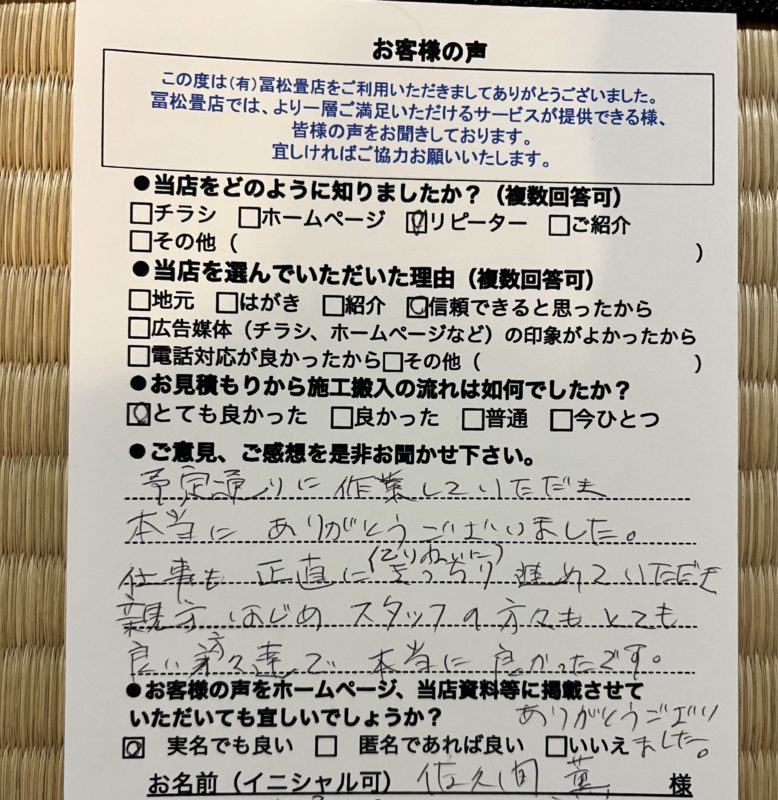 お客様の声
この度は(有)冨松畳店をご利用いただきましてありがとうございました。
冨松畳店では、より一層ご満足いただけるサービスが提供できる様、
皆様の声をお聞きしております。
宜しければご協力お願いいたします。
●当店をどのように知りましたか？（複数回答可）
□チラシ □ホームページ ☑リピーター □ご紹介
□その他（ ）
●当店を選んでいただいた理由（複数回答可）
□地元 □はがき □紹介 ☑信頼できると思ったから
□広告媒体（チラシ、ホームページなど）の印象がよかったから
□電話対応が良かったから□その他（ ）
●お見積もりから施工搬入の流れは如何でしたか？
☑とても良かった □良かった □普通 □今ひとつ
●ご意見、ご感想を是非お聞かせ下さい。
予定通りに作業していただき
本当にありがとうございました。
(ていねいに)
仕事も正直にきっちり進めていただき
親方はじめスタッフの方々もとても
良い方達で本当に良かったです。
●お客様の声をホームページ、当店資料等に掲載させて
いただいても宜しいでしょうか？
ありがとうござい
ました。
☑ 実名でも良い □ 匿名であれば良い □いいえ
お名前（イニシャル可） 佐久間 薫 様